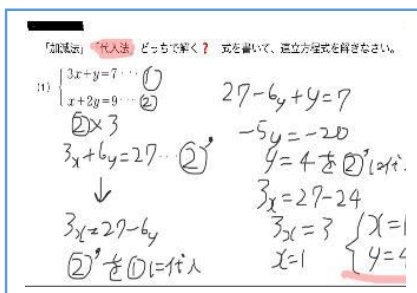 「加減法」「代入法」どっちで解く❓ 式を書いて、連立方程式を解きなさい。
(1) { 3x+y=7… ①
x+2y=9… ②
②×3
3x+6y=27…②'
↓
3x=27-6y
②'を①に代入
27-6y+y=7
-5y=-20
y=4を②'に代
3x=27-24
3x=3
x=1
{ x=1
y=4